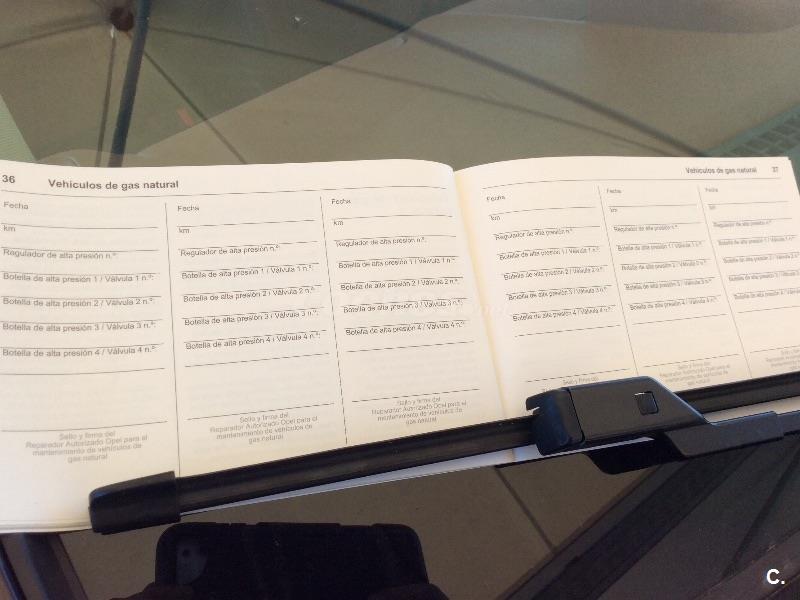 36 Vehículos de gas natural
Fecha
km
Regulador de alta presión n.º:
Botella de alta presión 1 / Válvula 1 n.º:
Botella de alta presión 2 / Válvula 2 n.º:
Botella de alta presión 3 / Válvula 3 n.º:
Botella de alta presión 4 / Válvula 4 n.º:
Sello y firma del
Reparador Autorizado Opel para el
mantenimiento de vehículos de
gas natural
Fecha
km
Regulador de alta presión n.º:
Botella de alta presión 1 / Válvula 1 n.º:
Botella de alta presión 2 / Válvula 2 n.º:
Botella de alta presión 3 / Válvula 3 n.º:
Botella de alta presión 4 / Válvula 4 n.º:
Sello y firma del
Reparador Autorizado Opel para el
mantenimiento de vehículos de
gas natural
Fecha
km
Regulador de alta presión n.º:
Botella de alta presión 1 / Válvula 1 n.º:
Botella de alta presión 2 / Válvula 2 n.º:
Botella de alta presión 3 / Válvula 3 n.º:
Botella de alta presión 4 / Válvula 4 n.º:
Sello y firma del
Reparador Autorizado Opel para el
mantenimiento de vehículos de
gas natural
Vehículos de gas natural 37
Fecha
km
Regulador de alta presión n.º:
Botella de alta presión 1 / Válvula 1 n.º:
Botella de alta presión 2 / Válvula 2 n.º:
Botella de alta presión 3 / Válvula 3 n.º:
Botella de alta presión 4 / Válvula 4 n.º:
Sello y firma del
Fecha
km
Regulador de alta presión n.º:
Botella de alta presión 1 / Válvula 1 n.º:
Botella de alta presión 2 / Válvula 2 n.º:
Botella de alta presión 3 / Válvula 3 n.º:
Botella de alta presión 4 / Válvula 4 n.º:
Sello y firma del
Reparador Autorizado Opel para el
mantenimiento de vehículos de
gas natural
Fecha
km
Regulador de alta presión n.º:
Botella de alta presión 1 / Válvula
Botella de alta presión 2 / Válvula
Botella de alta presión 3 / Válvula
Botella de alta presión 4 / Válvula
Sello y firma
C.